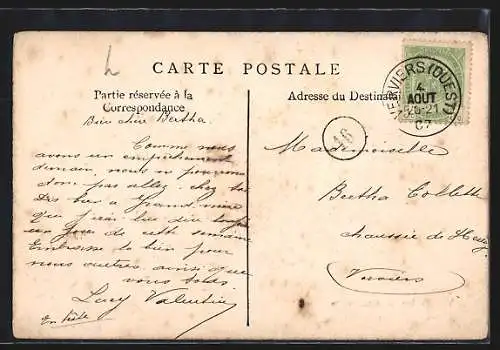 CARTE POSTALE
Partie réservée à la
Correspondance
Adresse du Destinata
VERVIERS (OUEST)
4
AOUT
20-21
07
16
Bien chère Bertha.
Comme nous
avons un empêchement
demain, nous ne pouvons
donc pas aller chez toi
à Grand-mère
que j'irai lui dire
un jour de cette semaine
Embrasse la bien pour
nous autres ainsi que
vous tous.
Lucy Valentin
En hâte
Mademoiselle
Bertha Collette
chaussée de Heusy
Verviers